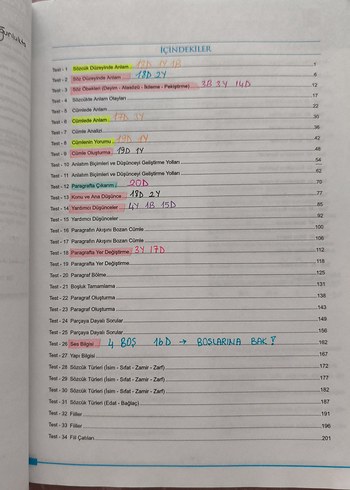 İÇİNDEKİLER
Test - 1 Sözcük Düzeyinde Anlam 1
Test - 2 Söz Düzeyinde Anlam 18D 2Y 6
Test - 3 Söz Öbekleri (Deyim - Atasözü - İkileme - Pekiştirme) 3B 3Y 14D 12
Test - 4 Sözcükte Anlam Olayları 17
Test - 5 Cümlede Anlam 22
Test - 6 Cümlede Anlam 17D 3Y 30
Test - 7 Cümle Analizi 36
Test - 8 Cümlenin Yorumu 19D 1Y 42
Test - 9 Cümle Oluşturma 19D 1Y 48
Test - 10 Anlatım Biçimleri ve Düşünceyi Geliştirme Yolları 54
Test - 11 Anlatım Biçimleri ve Düşünceyi Geliştirme Yolları 62
Test - 12 Paragrafta Çıkarım 20D 70
Test - 13 Konu ve Ana Düşünce 18D 2Y 77
Test - 14 Yardımcı Düşünceler 4Y 1B 15D 85
Test - 15 Yardımcı Düşünceler 92
Test - 16 Paragrafın Akışını Bozan Cümle 100
Test - 17 Paragrafın Akışını Bozan Cümle 106
Test - 18 Paragrafta Yer Değiştirme 3Y 17D 112
Test - 19 Paragrafta Yer Değiştirme 118
Test - 20 Paragraf Bölme 125
Test - 21 Boşluk Tamamlama 131
Test - 22 Paragraf Oluşturma 138
Test - 23 Paragraf Oluşturma 143
Test - 24 Parçaya Dayalı Sorular 149
Test - 25 Parçaya Dayalı Sorular 156
Test - 26 Ses Bilgisi 4 BOŞ 16D → BOŞLARINA BAK! 162
Test - 27 Yapı Bilgisi 167
Test - 28 Sözcük Türleri (İsim - Sıfat - Zamir - Zarf) 172
Test - 29 Sözcük Türleri (İsim - Sıfat - Zamir - Zarf) 177
Test - 30 Sözcük Türleri (İsim - Sıfat - Zamir - Zarf) 182
Test - 31 Sözcük Türleri (Edat - Bağlaç) 187
Test - 32 Fiiller 191
Test - 33 Fiiller 196
Test - 34 Fiil Çatıları 201